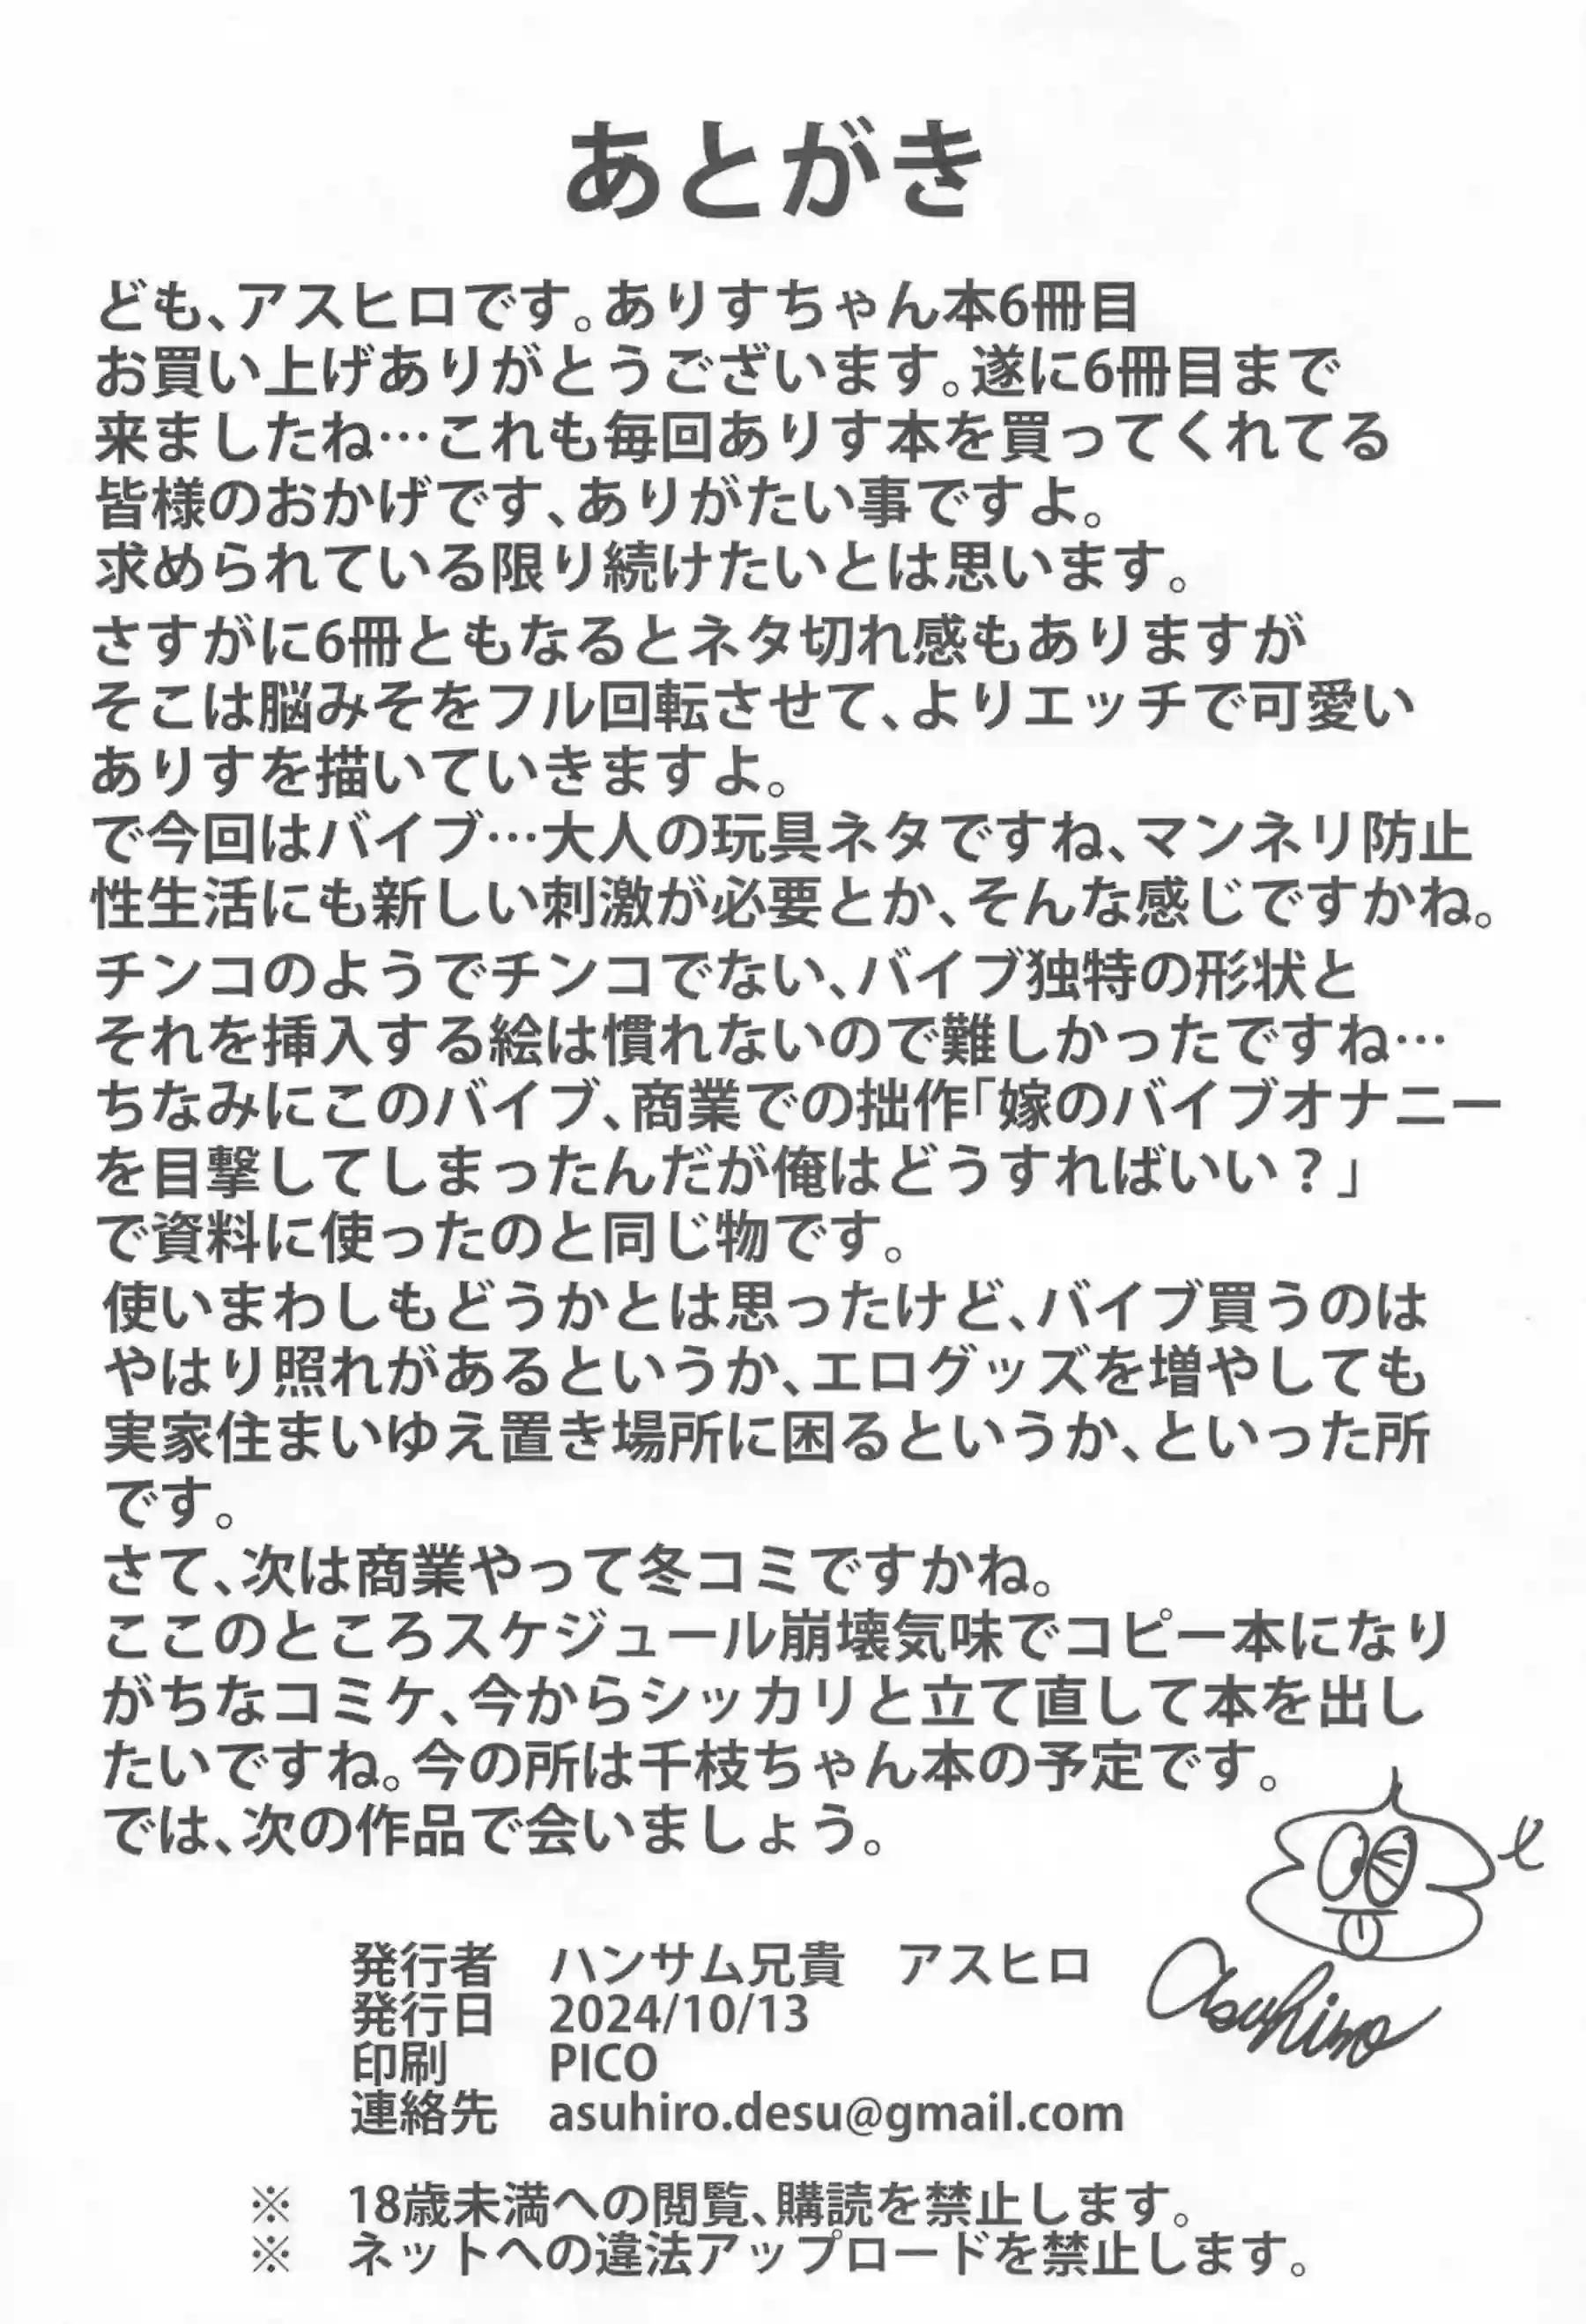 あとがき
ども、アスヒロです。ありすちゃん本6冊目
お買い上げありがとうございます。遂に6冊目まで
来ましたね…これも毎回ありす本を買ってくれてる
皆様のおかげです、ありがたい事ですよ。
求められている限り続けたいとは思います。
さすがに6冊ともなるとネタ切れ感もありますが
そこは脳みそをフル回転させて、よりエッチで可愛い
ありすを描いていきますよ。
で今回はバイブ…大人の玩具ネタですね、マンネリ防止
性生活にも新しい刺激が必要とか、そんな感じですかね。
チンコのようでチンコでない、バイブ独特の形状と
それを挿入する絵は慣れないので難しかったですね…
ちなみにこのバイブ、商業での拙作「嫁のバイブオナニー
を目撃してしまったんだが俺はどうすればいい？」
で資料に使ったのと同じ物です。
使いまわしもどうかとは思ったけど、バイブ買うのは
やはり照れがあるというか、エログッズを増やしても
実家住まいゆえ置き場所に困るというか、といった所
です。
さて、次は商業やって冬コミですかね。
ここのところスケジュール崩壊気味でコピー本になり
がちなコミケ、今からシッカリと立て直して本を出し
たいですね。今の所は千枝ちゃん本の予定です。
では、次の作品で会いましょう。
Asuhiro
発行者　ハンサム兄貴　アスヒロ
発行日　2024/10/13
印刷　PICO
連絡先　asuhiro.desu@gmail.com
※　18歳未満への閲覧、購読を禁止します。
※　ネットへの違法アップロードを禁止します。